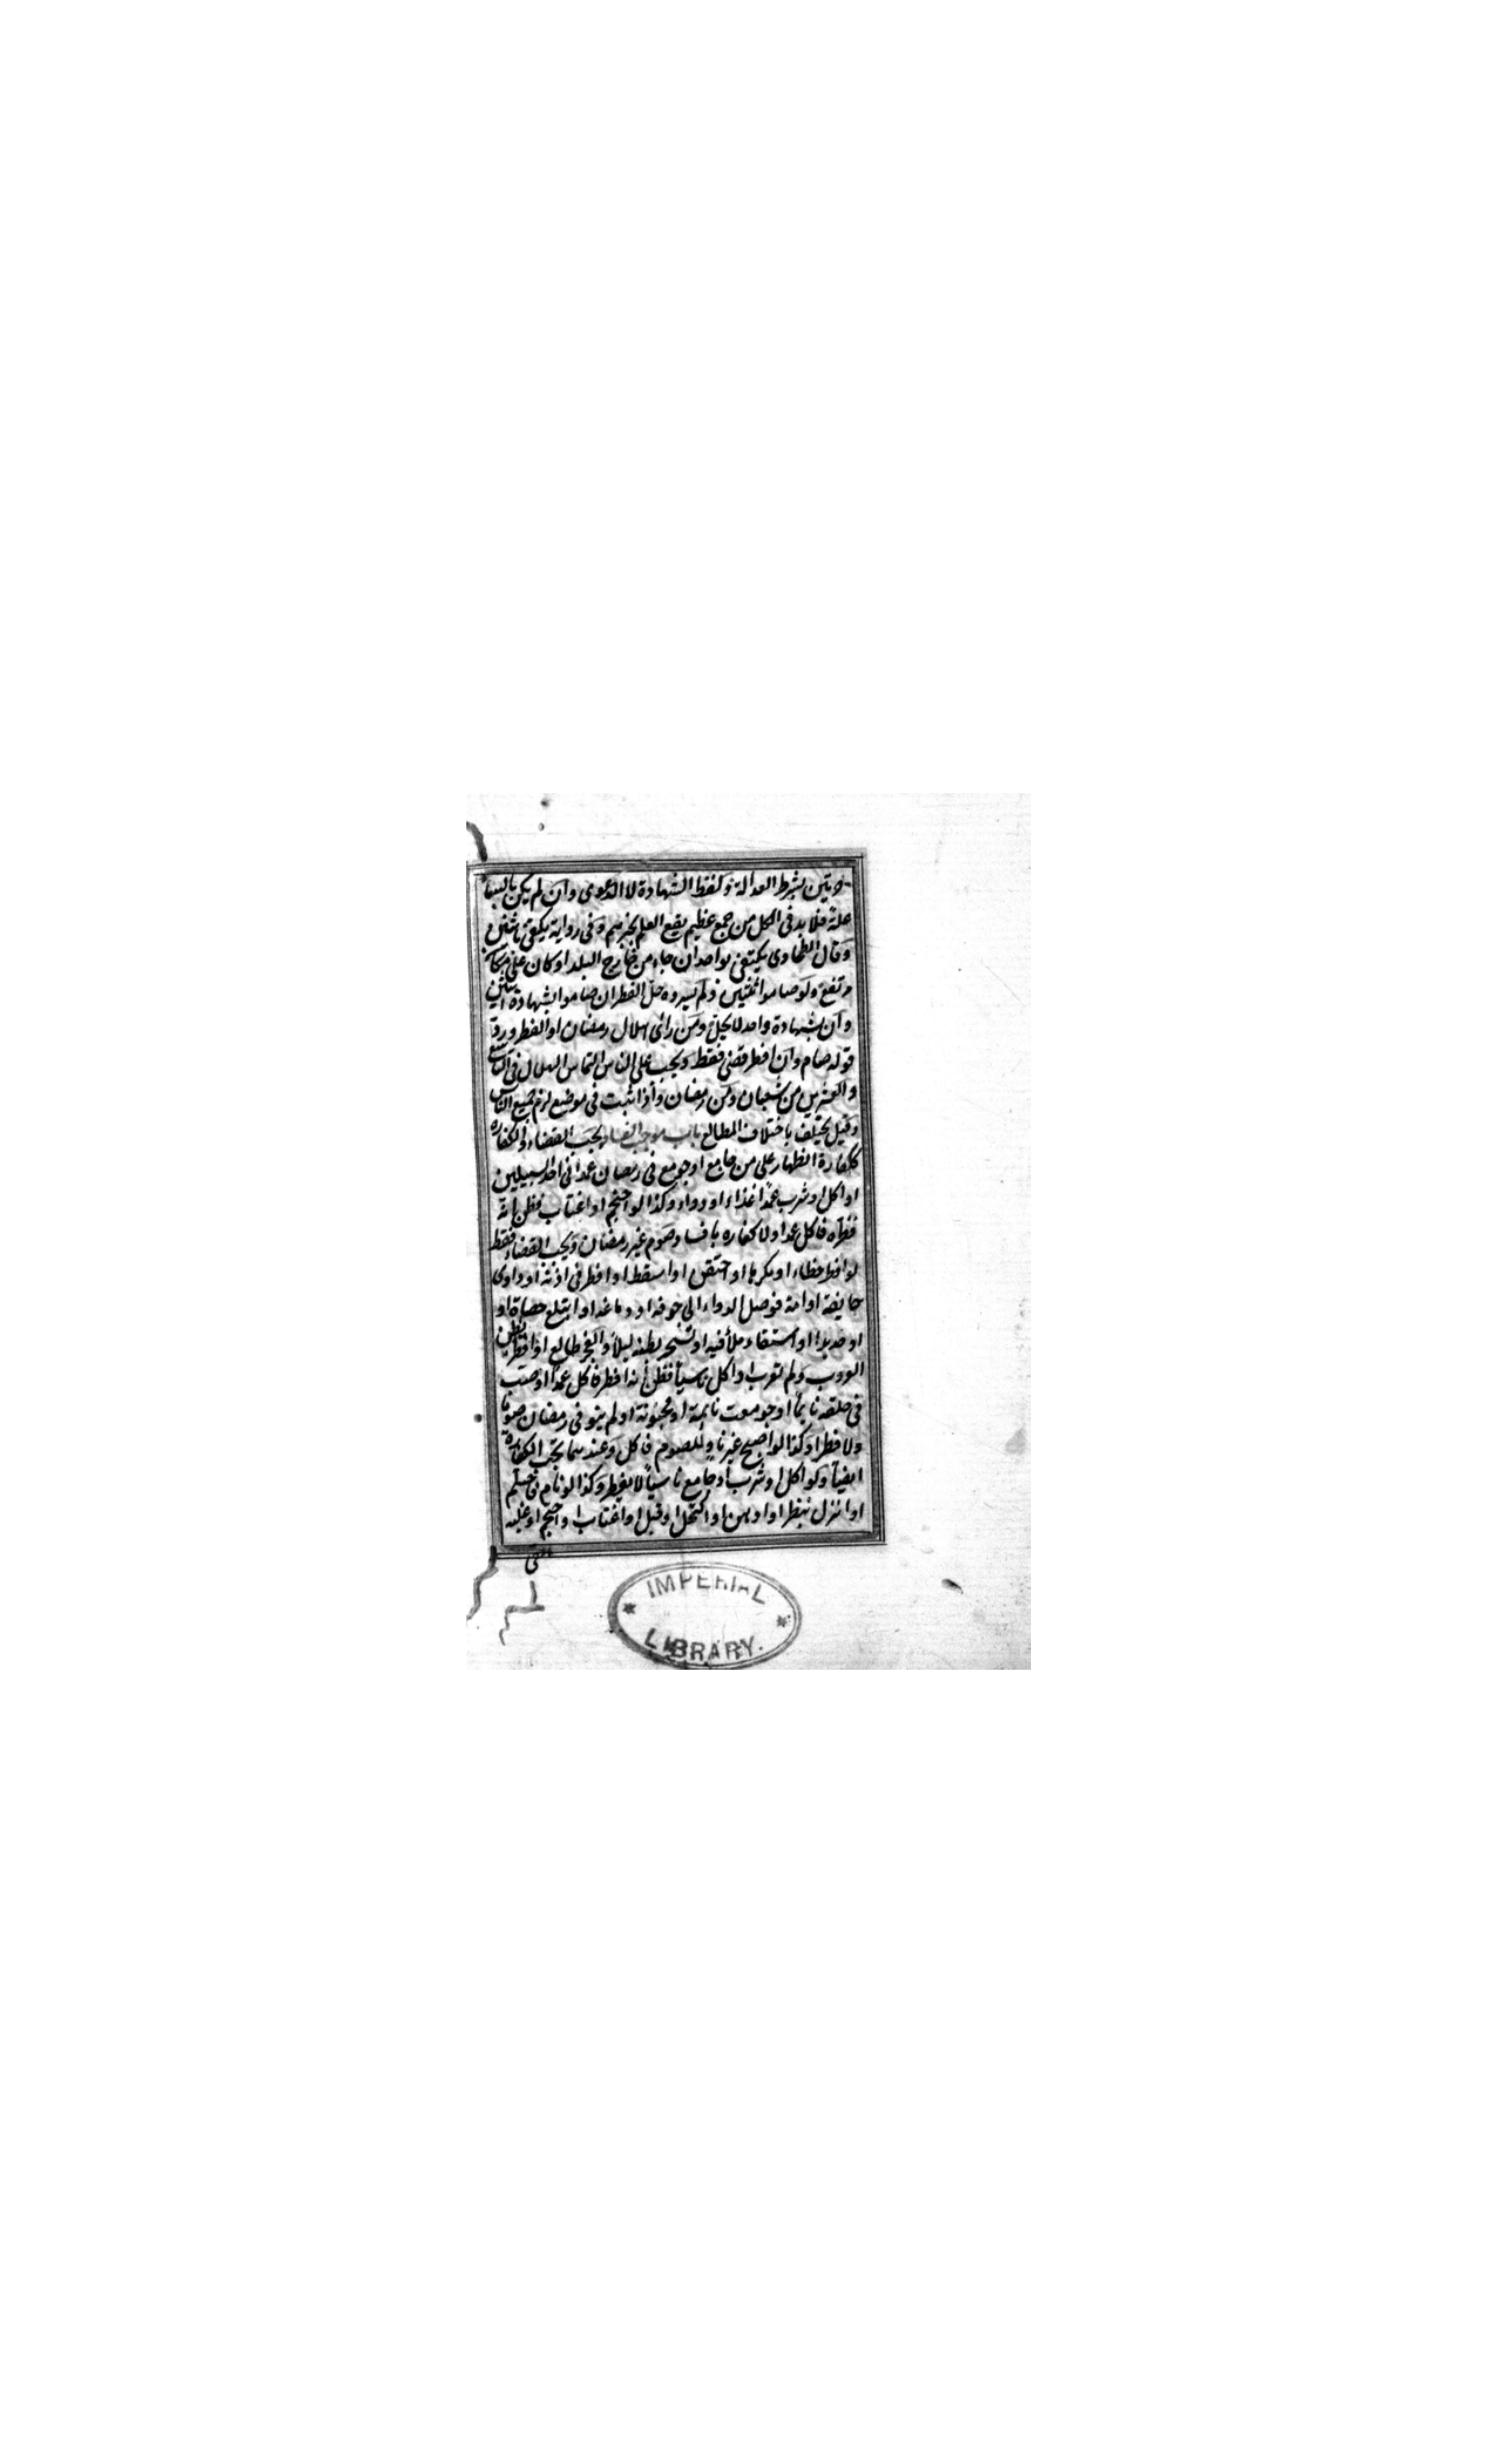 حرتين بشرط العدالة ولفظ الشهادة لا الدعوى وان لم يكن بالسما
علة فلا بد فى الكل من جمع عظيم يقع العلم بخبرهم وفى رواية يكتفى باثنين
وقال الطحاوى يكتفى بواحد ان جاء من خارج البلد او كان على مكان
مرتفع ولو صاموا ثلثين ولم يروه حل الفطر ان صاموا بشهادة اثنين
وان بشهادة واحد لا يحل ومن رأى هلال رمضان او الفطر ورد
قوله صام وان افطر قضى فقط ويجب على الناس التماس الهلال فى التاسع
والعشرين من شعبان ومن رمضان واذا ثبت فى موضع لزم جميع الناس
وقيل يختلف باختلاف المطالع باب موجب الفساد يجب القضاء والكفارة
ككفارة الظهار على من جامع او جومع فى رمضان عمدا فى احد السبيلين
او اكل او شرب عمدا غذاء او دواء وكذا لو احتجم او اغتاب فظن انه
فطره فاكل عمدا ولا كفاره بافساد صوم غير رمضان ويجب القضاء فقط
لو افطر خطاء او مكرها او احتقن او استعط او اقطر فى اذنه او داوى
جايفة او امة فوصل الدواء الى جوفه او دماغه او ابتلع حصاة او
او حديدا او استقاء ملأ فيه او تسحر بظنه ليلا والفجر طالع او افطر يظن
الغروب ولم تغرب او اكل ناسيا فظن أنه افطر فاكل عمدا او صب
فى حلقه نايما او جومعت نايمة او مجنونة او لم ينو فى رمضان صوما
ولا فطرا وكذا لو اصبح غير ناو للصوم فاكل وعندهما تجب الكفارة
ايضا ولو اكل او شرب أو جامع ناسيا لا يفطر وكذا لو نام فاحتلم
او انزل بنظر او ادهن او اكتحل او قبل او اغتاب او احتجم او غلبه
القى
IMPERIAL
LIBRARY.